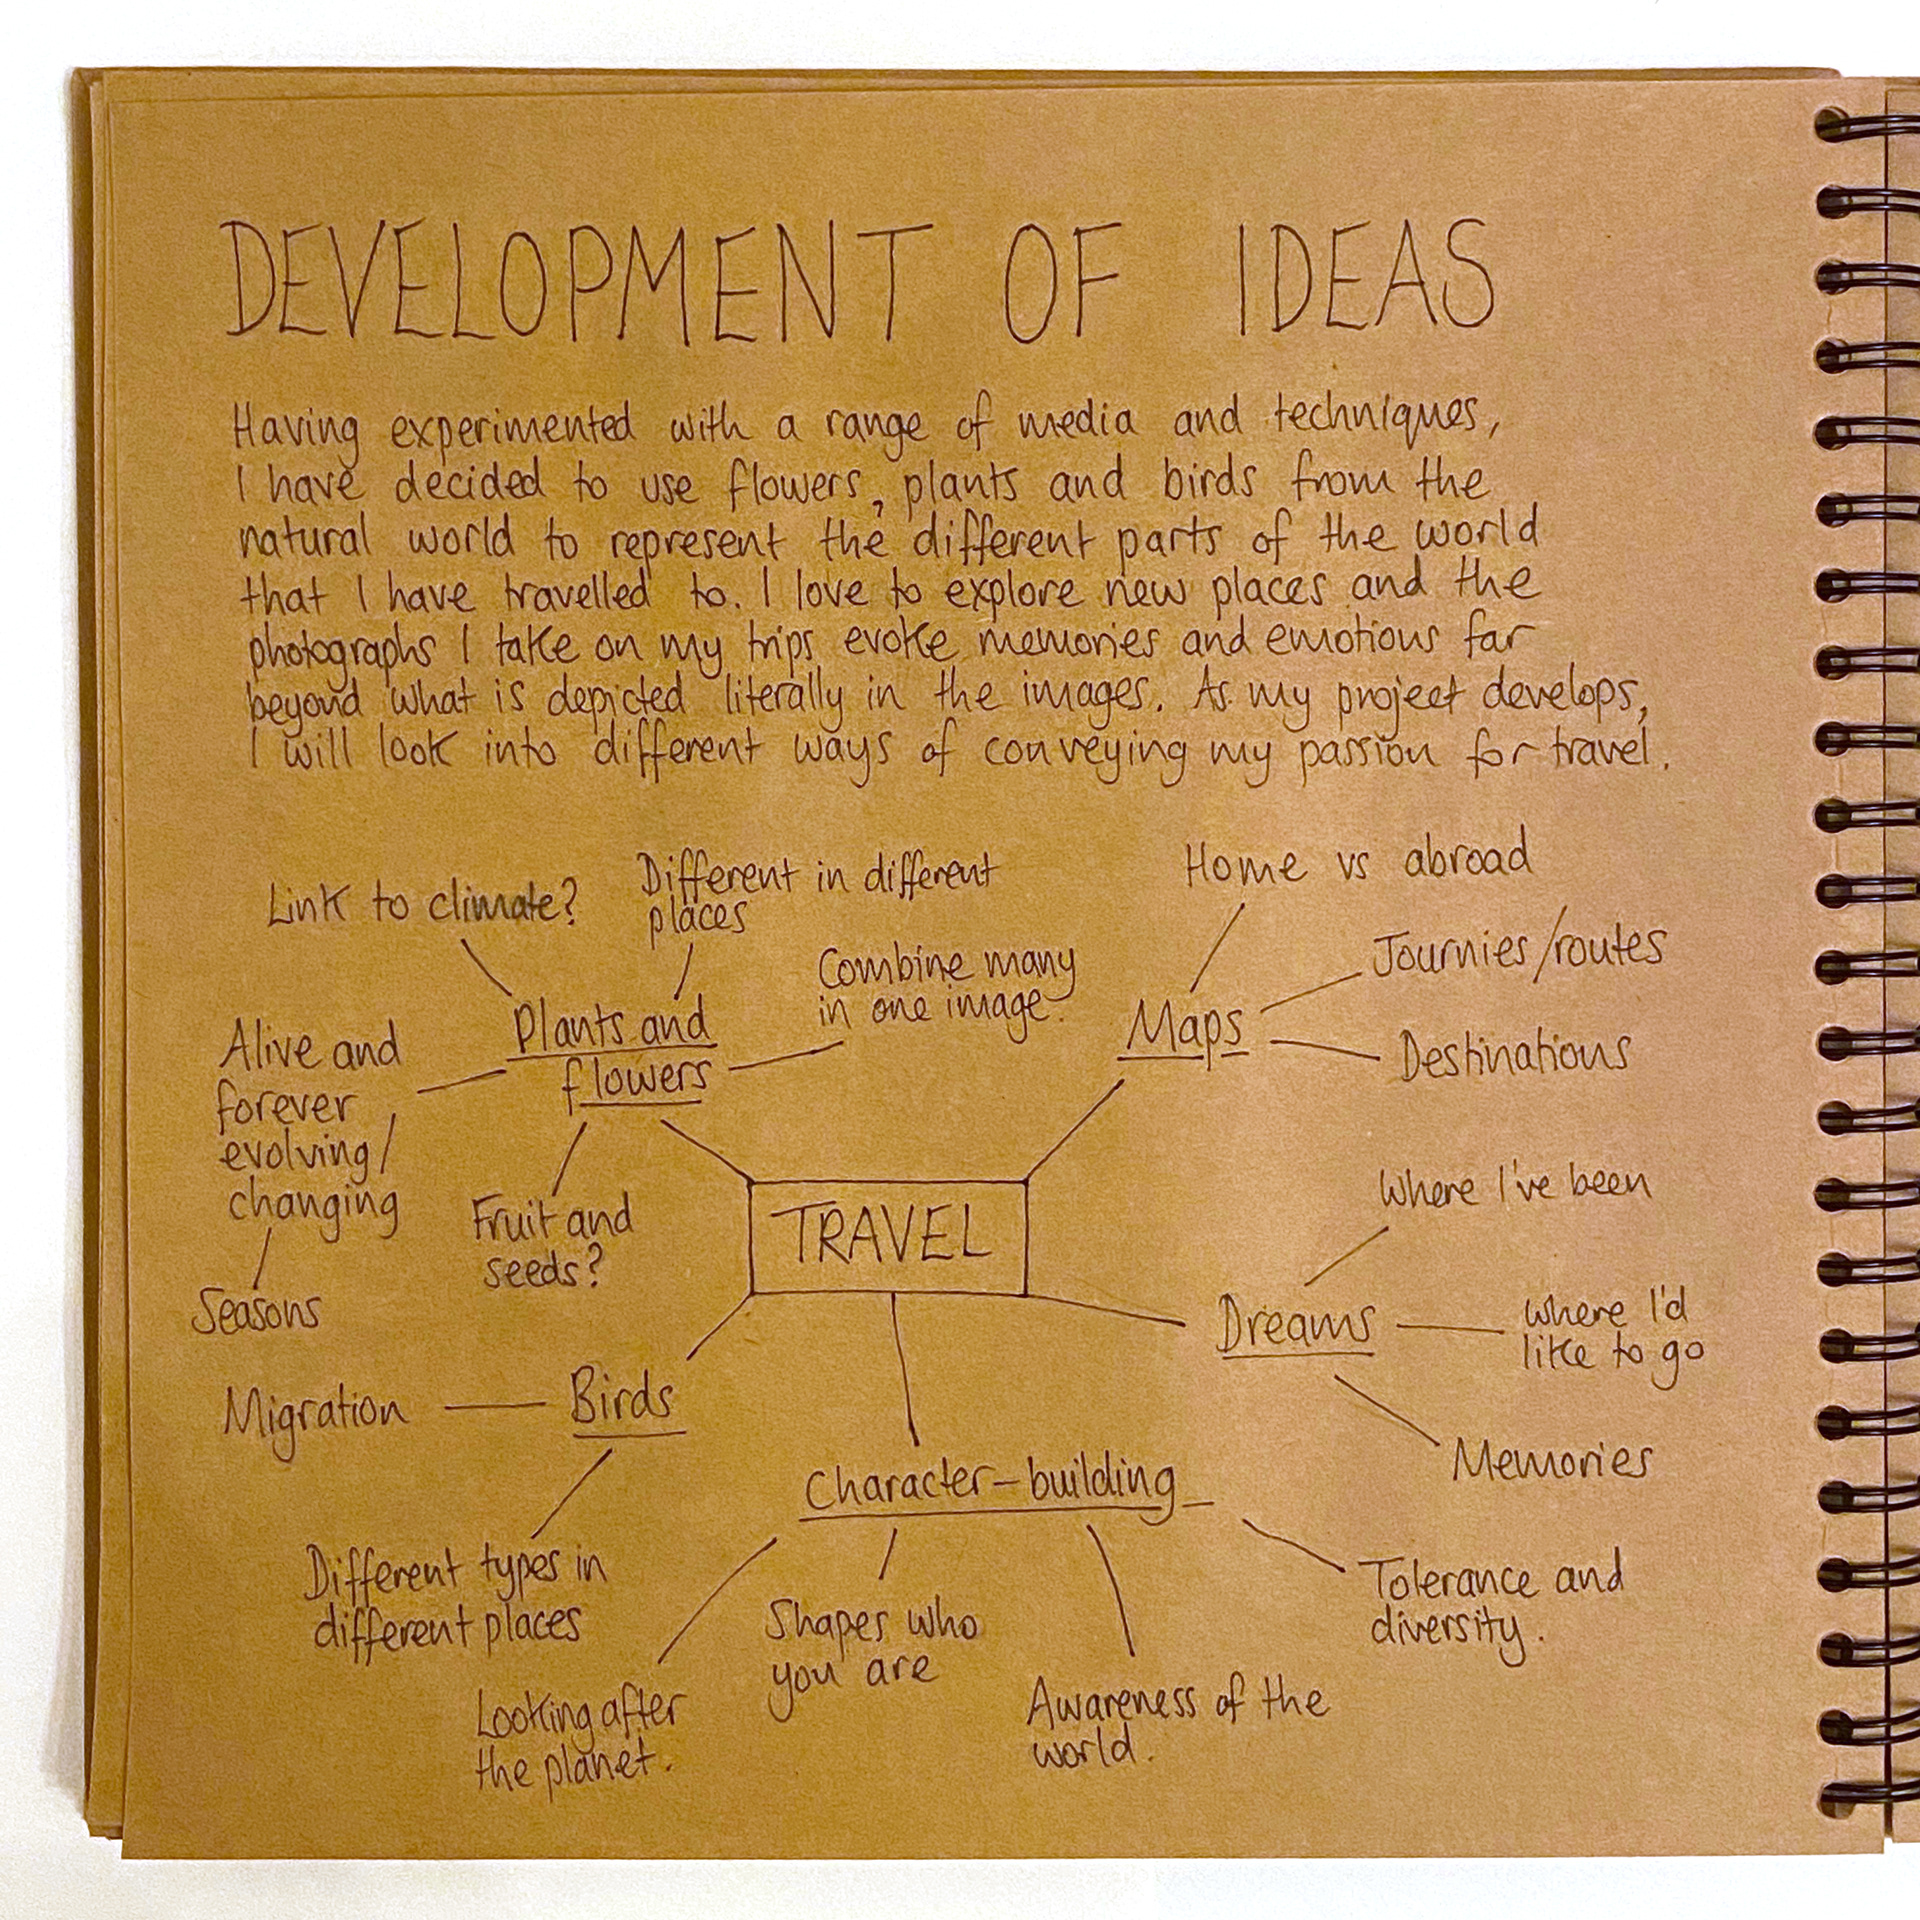 DEVELOPMENT OF IDEAS
Having experimented with a range of media and techniques,
I have decided to use flowers, plants and birds from the
natural world to represent the different parts of the world
that I have travelled to. I love to explore new places and the
photographs I take on my trips evoke memories and emotions far
beyond what is depicted literally in the images. As my project develops,
I will look into different ways of conveying my passion for travel.
Link to climate?
Different in different
places
Combine many
in one image.
Plants and
flowers
Alive and
forever
evolving/
changing
Seasons
Fruit and
seeds?
Home vs abroad
Journies/routes
Maps
Destinations
TRAVEL
Where I've been
Dreams
Where I'd
like to go
Memories
Migration
Birds
Different types in
different places
Character-building
Looking after
the planet.
Shapes who
you are
Awareness of the
world.
Tolerance and
diversity.